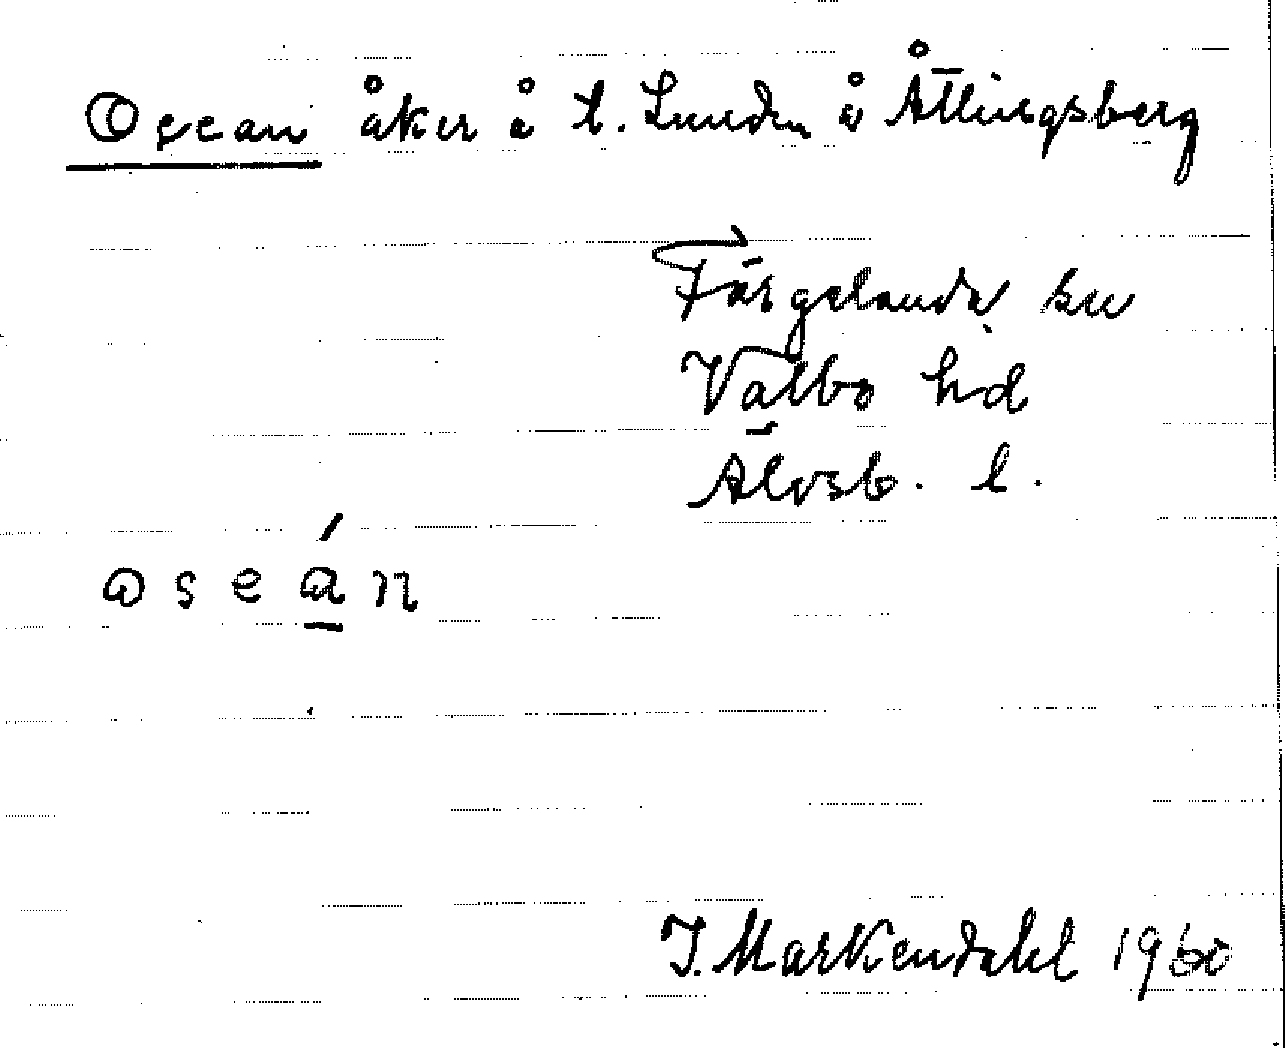 Ocean åker å t. Lunden å Åttingsberg
Färgelanda sn
Valbo hd
Älvsb. l.
oseán
J. Markendahl 1960